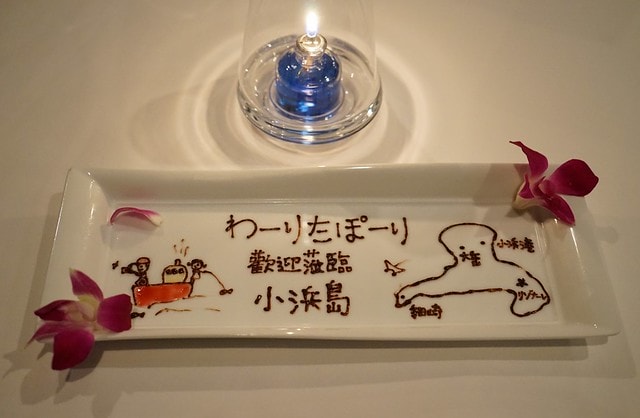 わーりたぼーり
歡迎蒞臨
小浜島
小浜港
大岳
細崎
リゾナーレ